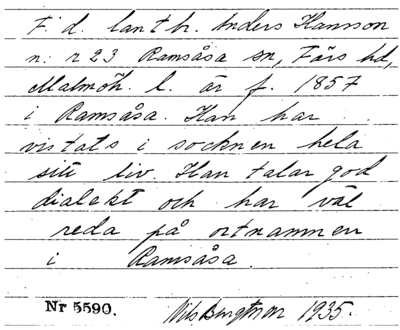 F. d. lantbr. Anders Hansson
n:r 23 Ramsåsa sn, Färs hd,
Malmöh. l. är f. 1857
i Ramsåsa. Han har
vistats i socknen hela
sitt liv. Han talar god
dialekt och har väl
reda på ortnamnen
i Ramsåsa.
Nr 5590. Nils Bengtsson 1935.